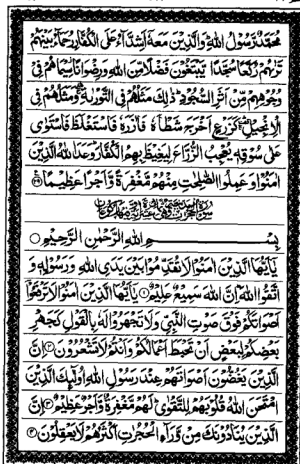 مُحَمَّدٌ رَّسُوْلُ اللّٰهِ ؕ وَالَّذِيْنَ مَعَهٗۤ اَشِدَّآءُ عَلَى الْكُفَّارِ رُحَمَآءُ بَيْنَهُمْ
تَرٰىهُمْ رُكَّعًا سُجَّدًا يَّبْتَغُوْنَ فَضْلًا مِّنَ اللّٰهِ وَرِضْوَانًا ؗ سِيْمَاهُمْ فِيْ
وُجُوْهِهِمْ مِّنْ اَثَرِ السُّجُوْدِ ؕ ذٰلِكَ مَثَلُهُمْ فِي التَّوْرٰىةِ ۛۖ وَمَثَلُهُمْ فِي
الْاِنْجِيْلِ ۛۚ كَزَرْعٍ اَخْرَجَ شَطْاَهٗ فَاٰزَرَهٗ فَاسْتَغْلَظَ فَاسْتَوٰى
عَلٰى سُوْقِهٖ يُعْجِبُ الزُّرَّاعَ لِيَغِيْظَ بِهِمُ الْكُفَّارَ ؕ وَعَدَ اللّٰهُ الَّذِيْنَ
اٰمَنُوْا وَعَمِلُوا الصّٰلِحٰتِ مِنْهُمْ مَّغْفِرَةً وَّاَجْرًا عَظِيْمًا ۟﴿۲۹﴾
بِسْمِ اللّٰهِ الرَّحْمٰنِ الرَّحِيْمِ ○
يٰۤاَيُّهَا الَّذِيْنَ اٰمَنُوْا لَا تُقَدِّمُوْا بَيْنَ يَدَيِ اللّٰهِ وَرَسُوْلِهٖ وَ
اتَّقُوا اللّٰهَ ؕ اِنَّ اللّٰهَ سَمِيْعٌ عَلِيْمٌ ﴿۱﴾ يٰۤاَيُّهَا الَّذِيْنَ اٰمَنُوْا لَا تَرْفَعُوْۤا
اَصْوَاتَكُمْ فَوْقَ صَوْتِ النَّبِيِّ وَلَا تَجْهَرُوْا لَهٗ بِالْقَوْلِ كَجَهْرِ
بَعْضِكُمْ لِبَعْضٍ اَنْ تَحْبَطَ اَعْمَالُكُمْ وَاَنْتُمْ لَا تَشْعُرُوْنَ ﴿۲﴾ اِنَّ
الَّذِيْنَ يَغُضُّوْنَ اَصْوَاتَهُمْ عِنْدَ رَسُوْلِ اللّٰهِ اُولٰٓئِكَ الَّذِيْنَ
امْتَحَنَ اللّٰهُ قُلُوْبَهُمْ لِلتَّقْوٰى ؕ لَهُمْ مَّغْفِرَةٌ وَّاَجْرٌ عَظِيْمٌ ﴿۳﴾ اِنَّ
الَّذِيْنَ يُنَادُوْنَكَ مِنْ وَّرَآءِ الْحُجُرٰتِ اَكْثَرُهُمْ لَا يَعْقِلُوْنَ ﴿۴﴾